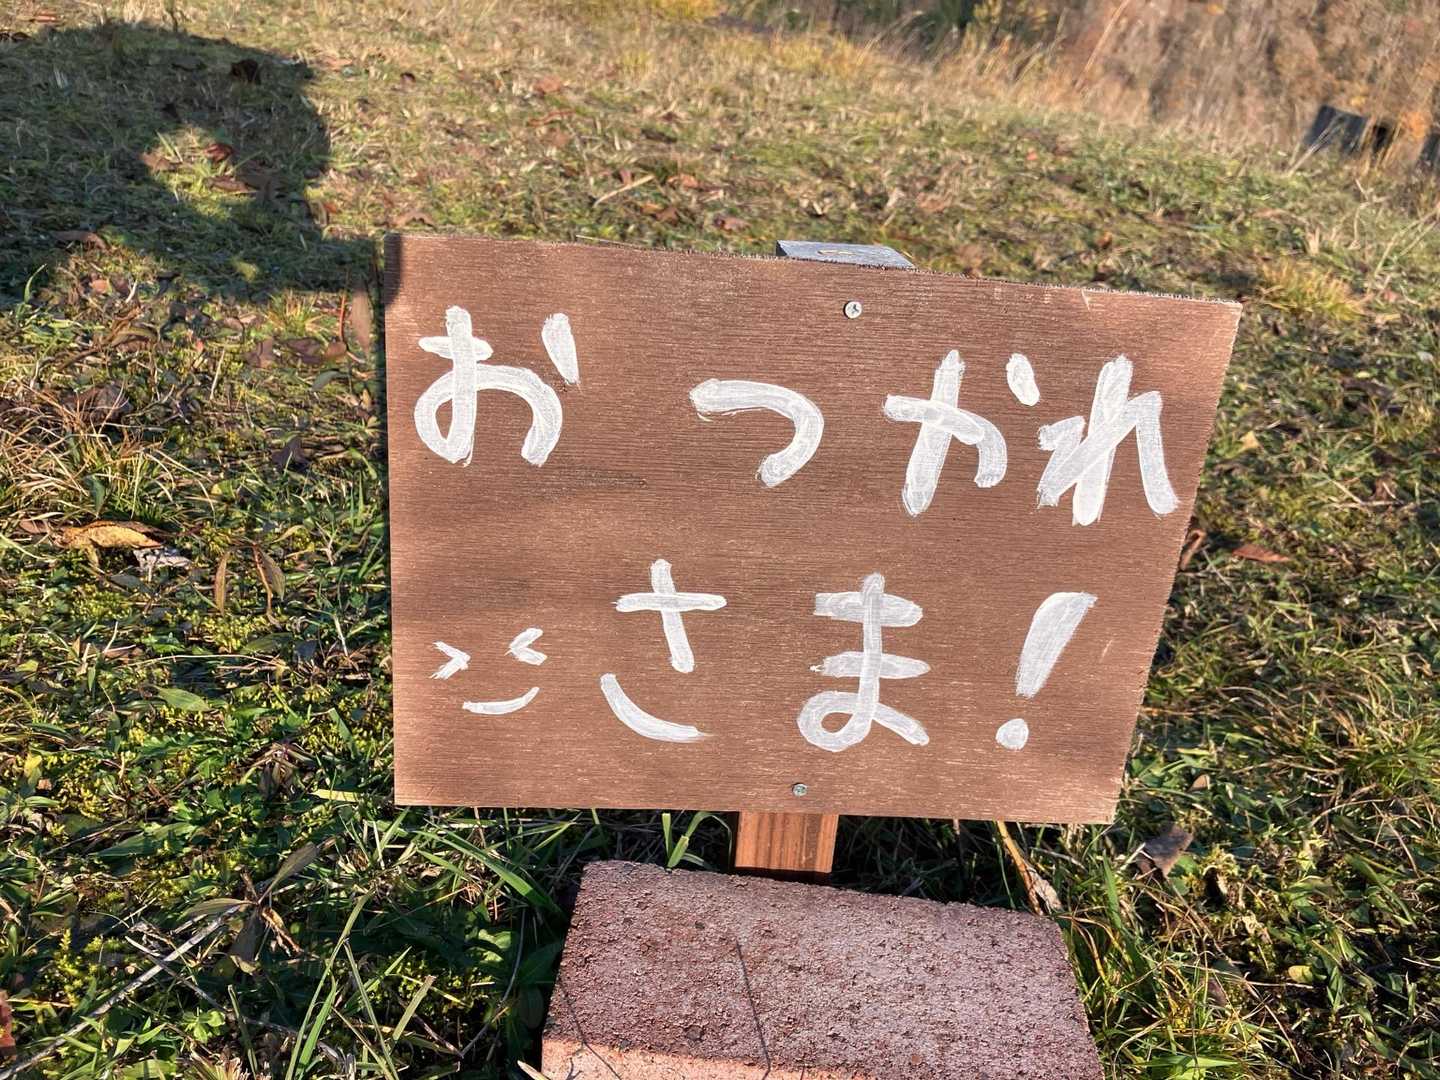 おつかれ
さま!